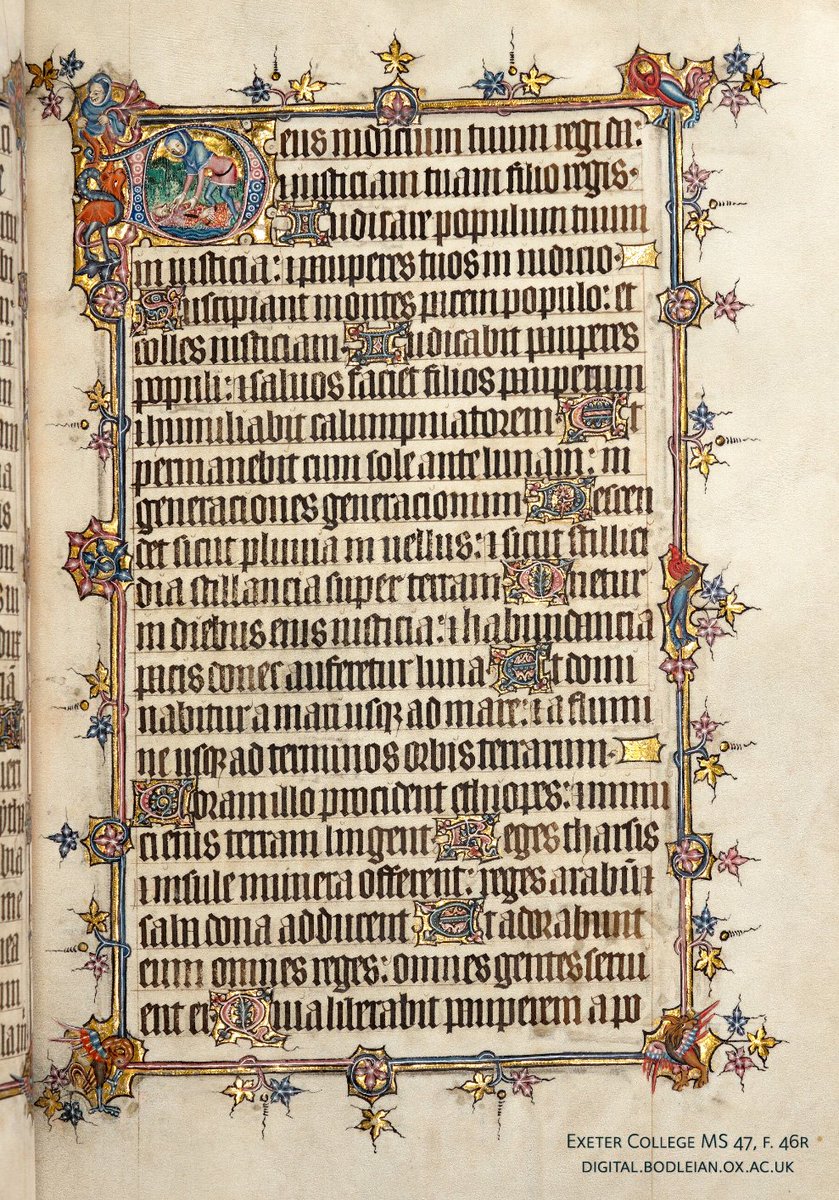 Deus iudicium tuum regi da:
⁊ iusticiam tuam filio regis·
Iudicare populum tuum
in iusticia: ⁊ pauperes tuos in iudicio·
Suscipiant montes pacem populo: et
colles iusticiam Iudicabit pauperes
populi: ⁊ saluos faciet filios pauperum
⁊ humiliabit calumpniatorem Et
permanebit cum sole ante lunam: in
generaciones generacionum Descen
det sicut pluuia in uellus: ⁊ sicut stillici
dia stillancia super terram Orietur
in diebus eius iusticia: ⁊ habundancia
pacis donec auferetur luna Et domi
nabitur a mari usqꝫ ad mare: ⁊ a flumi
ne usqꝫ ad terminos orbis terrarum·
Coram illo procident ethiopes: ⁊ inimi
ci eius terram lingent Reges tharsis
⁊ insule munera offerent: reges arabū ⁊
saba dona adducent Et adorabunt
eum omnes reges: omnes gentes serui
ent ei Quia liberabit pauperem a po
Exeter College MS 47, f. 46r
digital.bodleian.ox.ac.uk